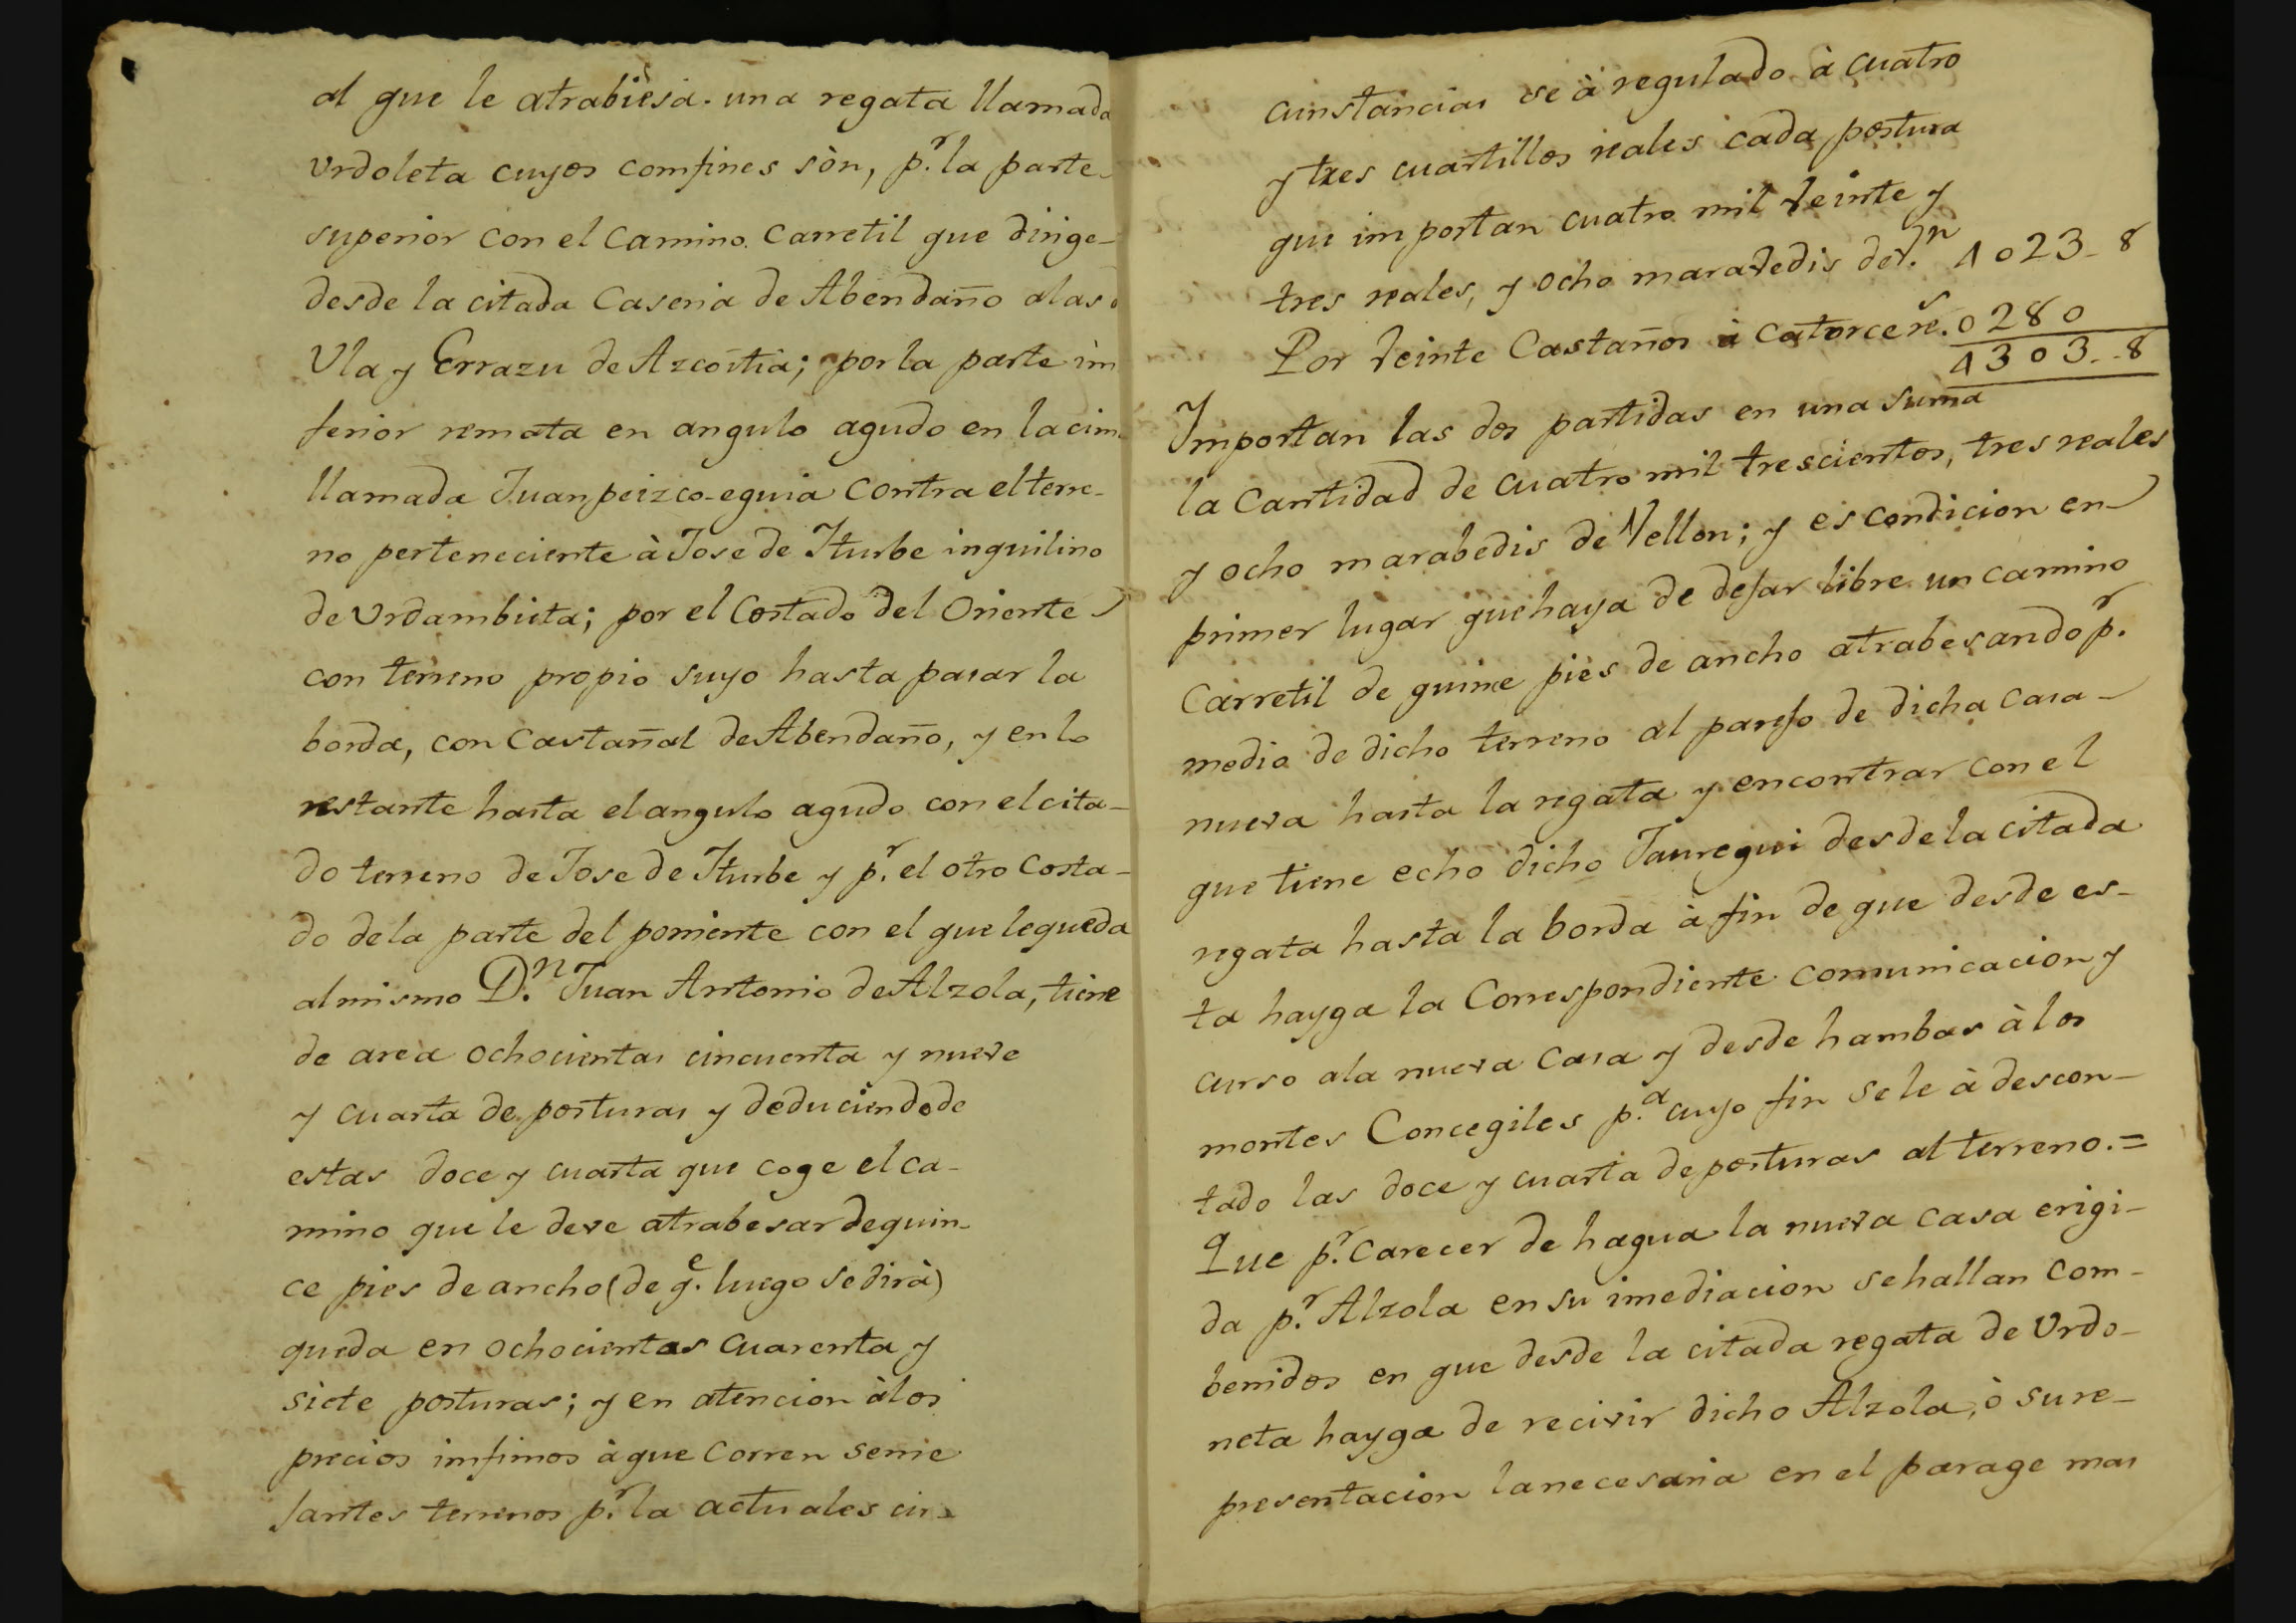 al que le atrabiesa. una regata llamada
Vrdoleta cuyos comfines sòn, p.r la parte
superior con el Camino Carretil que dirige
desde la citada Caseria de Abendaño alas d
Vla y Errazu de Azcoitia; por la parte im
ferior remata en angulo agudo en la cim
llamada Juanpeizco-eguia contra el terre-
no perteneciente à Jose de Yturbe inquilino
de Vrdambieta; por el Costado del Oriente
con terreno propio suyo hasta pasar la
borda, con Castañal de Abendaño, y en lo
restante hasta el angulo agudo con el cita-
do terreno de Jose de Yturbe y p.r el otro Costa-
do dela parte del poniente con el que le queda
al mismo D.n Juan Antonio de Alzola, tiene
de area ochocientas cincuenta y nueve
y cuarta de posturas y deduciendo de
estas doce y cuarta que coge el ca-
mino que le deve atrabesar de quin-
ce pies de ancho (de q.e luego se dirà)
queda en ochocientas cuarenta y
siete posturas; y en atencion àlos
precios imfimos àque corren seme
jantes terrenos p.r la actuales cir-
cunstancias se à regulado à cuatro
y tres cuartillos reales cada postura
que importan cuatro mil veinte y
tres reales, y ocho maravedis de V.n 4023-8
Por veinte Castaños à catorce r.s 0280
4303--8
Ymportan las dos partidas en una suma
la Cantidad de cuatro mil trescientos, tres reales
y ocho marabedis de Vellon; y es condicion en
primer lugar que haya de dejar libre un camino
Carretil de quince pies de ancho atrabesando p.r
medio de dicho terreno al parejo de dicha casa
nueva hasta la regata y encontrar con el
que tiene echo dicho Jauregui desde la citada
regata hasta la borda à fin de que desde es-
ta hayga la Correspondiente comunicacion y
curso ala nueva casa y desde hambas àlos
montes Concegiles p.a cuyo fin se le à descon-
tado las doce y cuarta de posturas al terreno.=
Que p.r carecer de hagua la nueva casa erigi-
da p.r Alzola en su imediacion se hallan com-
benidos en que desde la citada regata de Vrdo-
neta hayga de recivir dicho Alzola, ò su re-
presentacion la necesaria en el parage mas